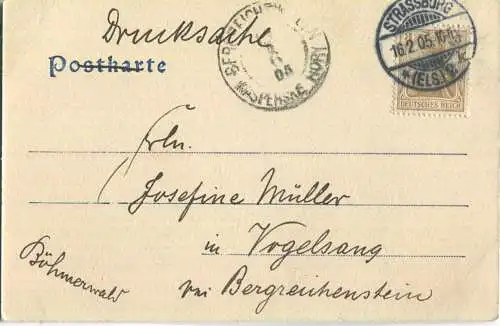 Drucksache
Postkarte
BERGREICHENSTEIN
KAŠPERSKÉ HORY
STRASSBURG
16.2.05.
* (ELS.)
DEUTSCHES REICH
Frln.
Josefine Müller
in Vogelsang
bei Bergreichenstein
Böhmerwald